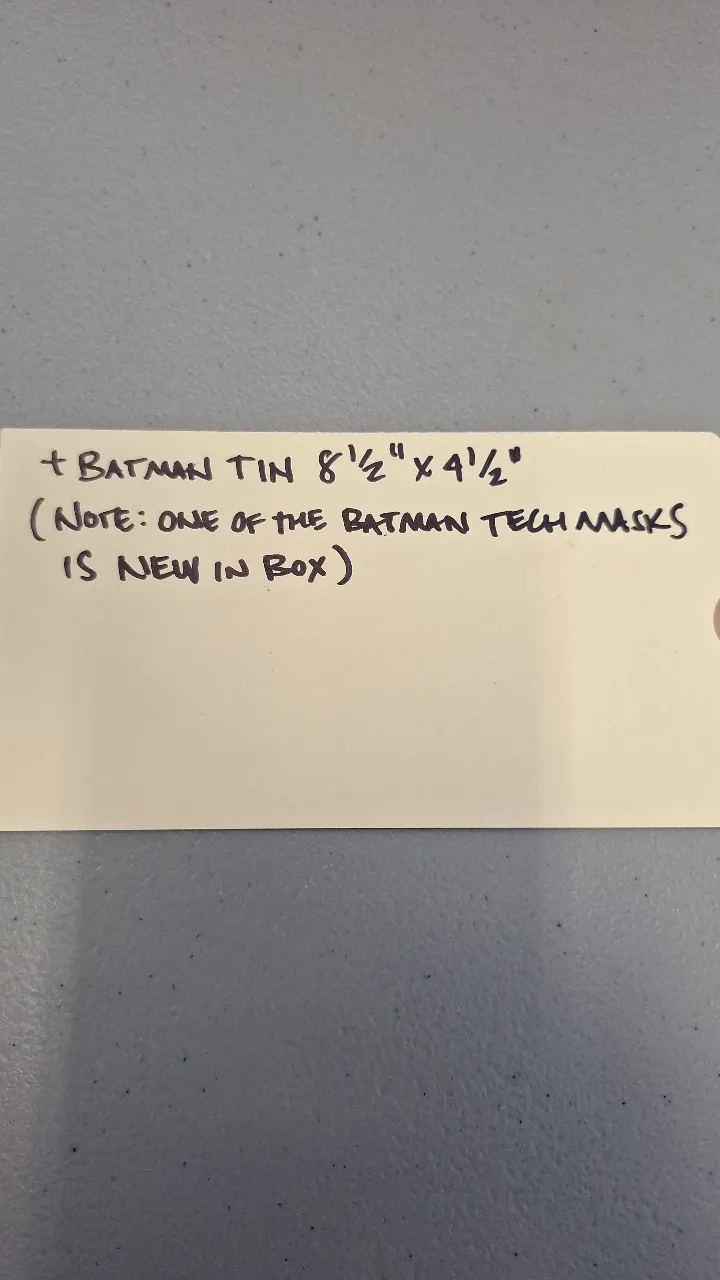 + BATMAN TIN 8 1/2" x 4 1/2"
(NOTE: ONE OF THE BATMAN TECH MASKS
IS NEW IN BOX)